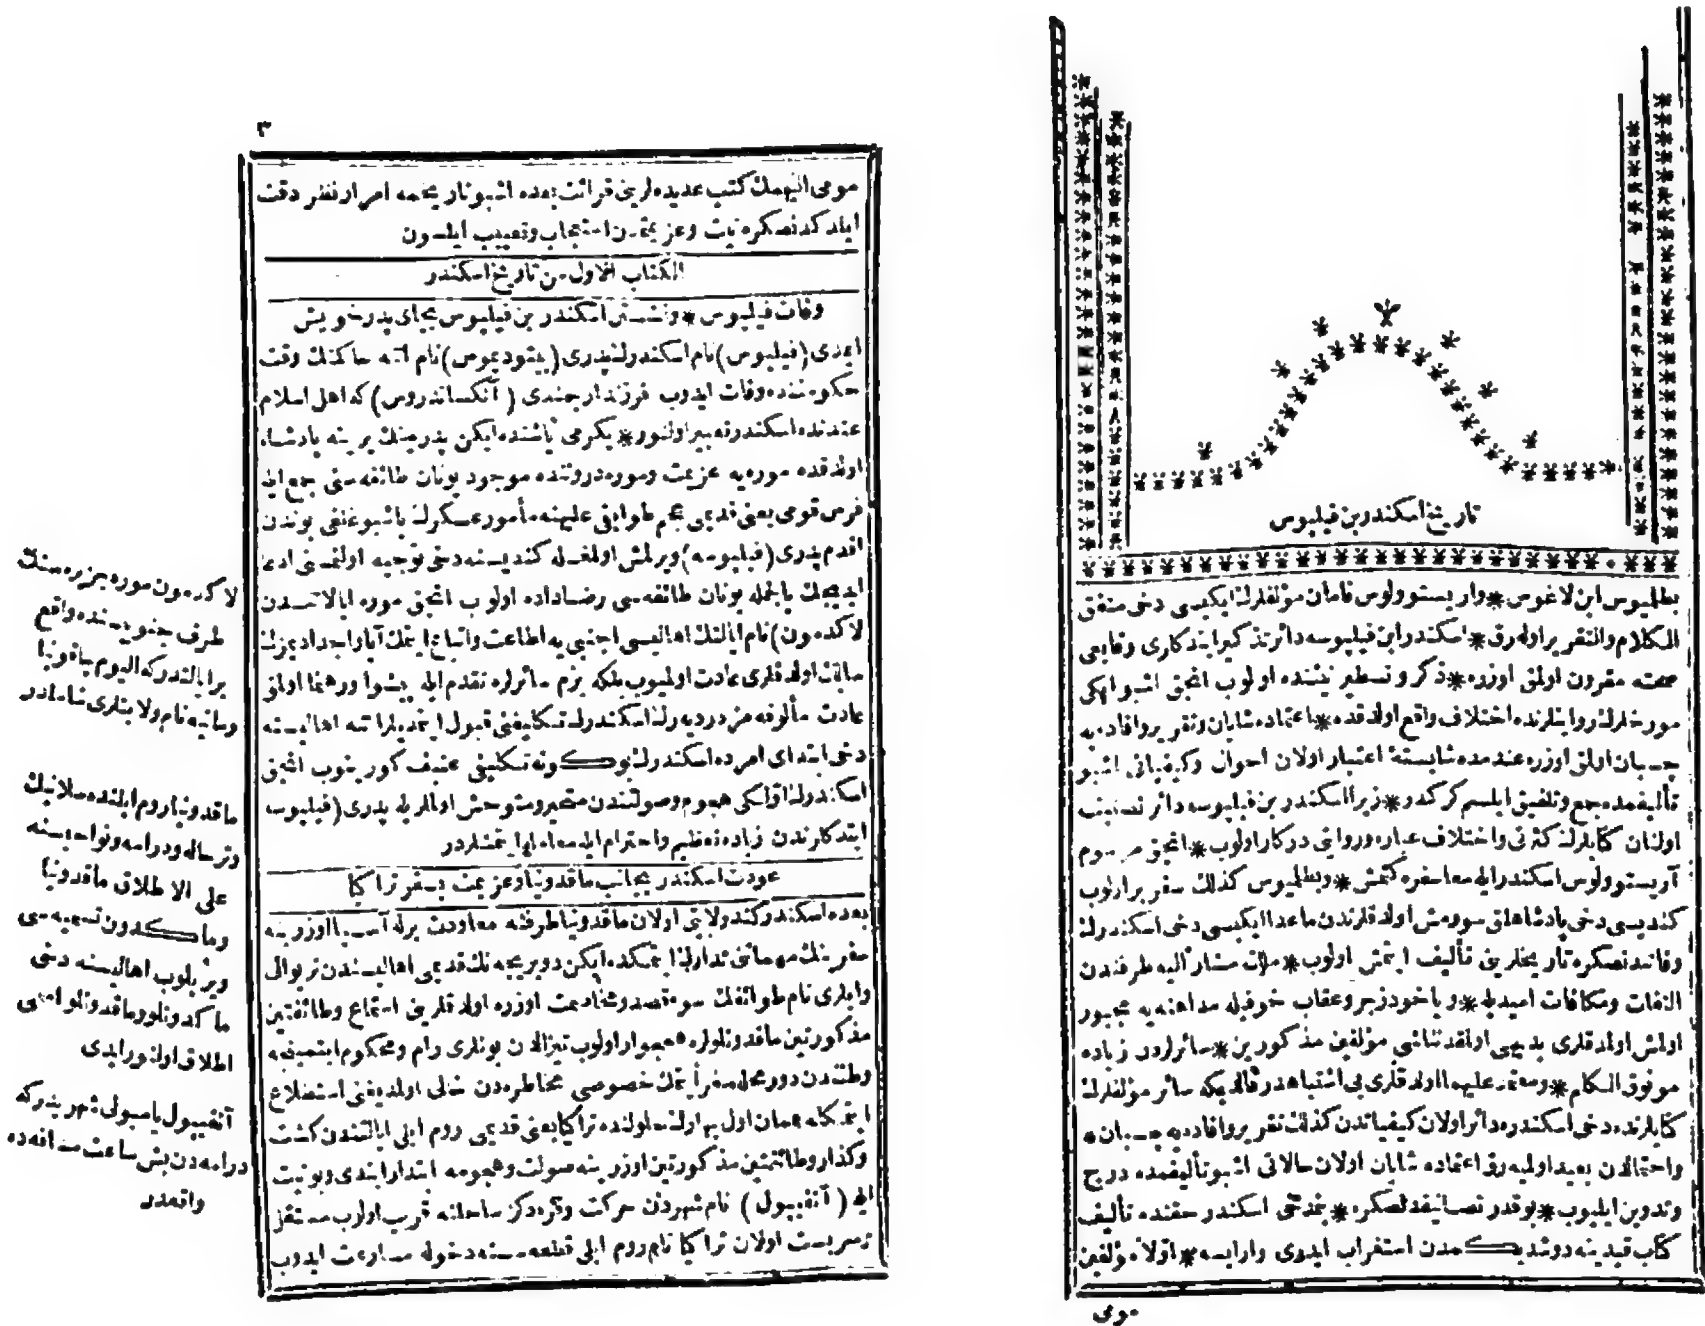 تاريخ اسكندر بن فيلپوس
بطلميوس ابن لاغوس * واريستوولوس نامان مؤلفلرك ايكيسى دخى متفق
الكلام والتقرير اوله رق * اسكندر ابن فيليپوسه دائر تذكير ايتدكلرى وقايعى
صحته مقرون اولمق اوزره * ذكر وتسطير نيتنده اولوب انجق اشبو ايكى
مورخلرك روايتلرنده اختلاف واقع اولدقده * اعتماده شايان وتقرير وافاده يه
چسبان اولمق اوزره عندمده شايستهٔ اعتبار اولان احوال وكيفياتى اشبو
تأليفمده جمع وتلفيق ايلسم كركدر * زيرا اسكندر بن فيليپوسه دائر تصنيف
اولنان كتابلرك كثرتى واختلاف عباره وروايتى دركار اولوب * انجق مرسوم
آريستوولوس اسكندر ايله معا سفره كتمش * وبطلميوس كذلك سفر برابر اولوب
كنديسى دخى پادشاهلق سورمش اولدقلرندن ماعدا ايكيسى دخى اسكندرك
وفاتندنصكره تاريخلرينى تأليف ايتمش اولوب * ملك مشار اليه طرفندن
التفات ومكافات اميديله * وياخود زجر وعقاب خوفيله مداهنه يه مجبور
اولمش اولدقلرى بديهى اولمقدنناشى مؤلفين مذكورين * سائرلردن زياده
موثوق الكلم * ومعتمد عليهما اولدقلرى بى اشتباهدر قالديكه سائر مؤلفلرك
كتابلرنده دخى اسكندره دائر اولان كيفياتدن كذلك تقرير وافاده يه چسبان *
واحتمالدن بعيد اوليه رق اعتماده شايان اولان حالاتى اشبو تأليفمده درج
وتدوين ايليوب * بوقدر تصانيفدنصكره * بندخى اسكندر حقنده تأليف
كتاب قيدينه دوشديكمدن استغراب ايدرى وار ايسه * اولا مؤلفين
مومى
٣
مومى اليهمك كتب عديده لرينى قرائت بعده اشبو تاريخمه امرار نظر دقت
ايلدكدنصكره نيت وعزيمتمدن استعجاب وتعييب ايلسون
الكتاب الاول من تاريخ اسكندر
وفات فيليپوس * ونشستن اسكندر بن فيليپوس بجاى پدر خويش
ايمدى (فيليپوس) نام اسكندرك پدرى (پيتوديموس) نام آتنه حاكمنك وقت
حكومتنده وفات ايدوب فرزند ارجمندى (آلكساندروس) كه اهل اسلام
عندنده اسكندر تعبير اولنور * يكرمى ياشنده ايكن پدرينك يرينه پادشاه
اولدقده موره يه عزيمت وموره دروننده موجود يونان طائفه سنى جمع ايله
فرس قومى يعنى قديمى عجم طوايفى عليهنه مأمور عسكرك باشبوغلغى بوندن
اقدم پدرى (فيليپوسه) ويرلمش اولمغله كنديسنه دخى توجيه اولنمسنى ادعا
ايديجك بالجمله يونان طائفه سى رضاداده اولوب انجق موره ايالاتندن
لاكدمون) نام ايالتك اهاليسى اجنبى يه اطاعت واتباع ايتمك آبا واجداديمزك
سابقه اولدقلرى عادت اولميوب بلكه بزم سائرلره تقدم ايله پيشوا ورهنما اولمق
عادت مألوفه مزدر ديه رك اسكندرك تكليفنى قبول ايتمديلر آتنه اهاليسنه
دخى ابتداى امرده اسكندرك بوكونه تكليفى عنيف كورينوب انجق
اسكندرك اولكى هجوم وصولتندن متحير ومتوحش اولملريله پدرى (فيليپوسه
ايتدكلرندن زياده تعظيم واحترام ايله معامله ايتمشلردر
عودت اسكندر بجانب ماقدونيا وعزيمت بسفر تراكيا
بعده اسكندر كند ولايتى اولان ماقدونيا طرفنه معاودت برله آسيا اوزرينه
سفرينك مهماتنى تدارك ايتمكده ايكن دوبريجه نك قديمى اهاليسندن تريوالى
وايلرى نام طوائفك سوء قصد وخيانت اوزره اولدقلرينى استماع وطائفتين
مذكورتين ماقدونلولره همجوار اولوب تيز الدن بونلرى رام ومحكوم ايتمينجه
وطنندن دور محله سفر ايتمك خصوصى مخاطره دن خالى اولمديغنى استطلاع
ايتمكله همان اول بهار حلولنده تراكيا يعنى قديمى روم ايلى ايالتندن كشت
وكذار وطائفتين مذكورتين اوزرينه صولت وهجومه ابتدار ايتدى وبو نيت
ايله (آنفيپول) نام شهردن حركت وقره دكز ساحلنه قريب اولوب مستقل
وسربست اولان تراكيا نام روم ايلى قطعه سنه دخوله مسارعت ايدوب
لاكدمون موره جزيره سنك
طرف جنوبيسنده واقع
بر ايالتدركه اليوم چاقونيا
ومانيه نام ولايتلرى شاملدر
ماقدونيا روم ايلنده سلانيك
وترحاله ودرامه ونواحيسنه
على الاطلاق ماقدونيا
وماكدون تسميه سى
ويريلوب اهاليسنه دخى
ماكدونلو وماقدونلو اسمى
اطلاق اولنور ايدى
آنفيپول يامبولى شهريدركه
درامه دن بش ساعت مسافه ده
واقعدر